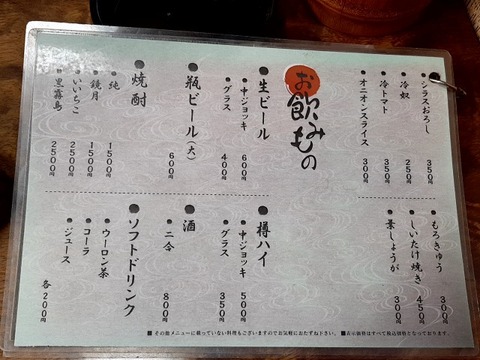 シラスおろし 350円
冷奴 250円
冷トマト 350円
オニオンスライス 300円
もろきゅう 300円
しいたけ焼き 450円
葉しょうが 300円
お飲みもの
●生ビール
●中ジョッキ 600円
●グラス 400円
●瓶ビール(大) 600円
●焼酎
●純 1500円
●鏡月 1500円
●いいちこ 2500円
●黒霧島 2500円
●樽ハイ
●中ジョッキ 500円
●グラス 350円
●酒
●二合 800円
●ソフトドリンク
●ウーロン茶
●コーラ
●ジュース 各200円
■その他メニューに載っていない料理もございますのでお気軽におたずね下さい。 ■表示価格はすべて税込価格となっております。